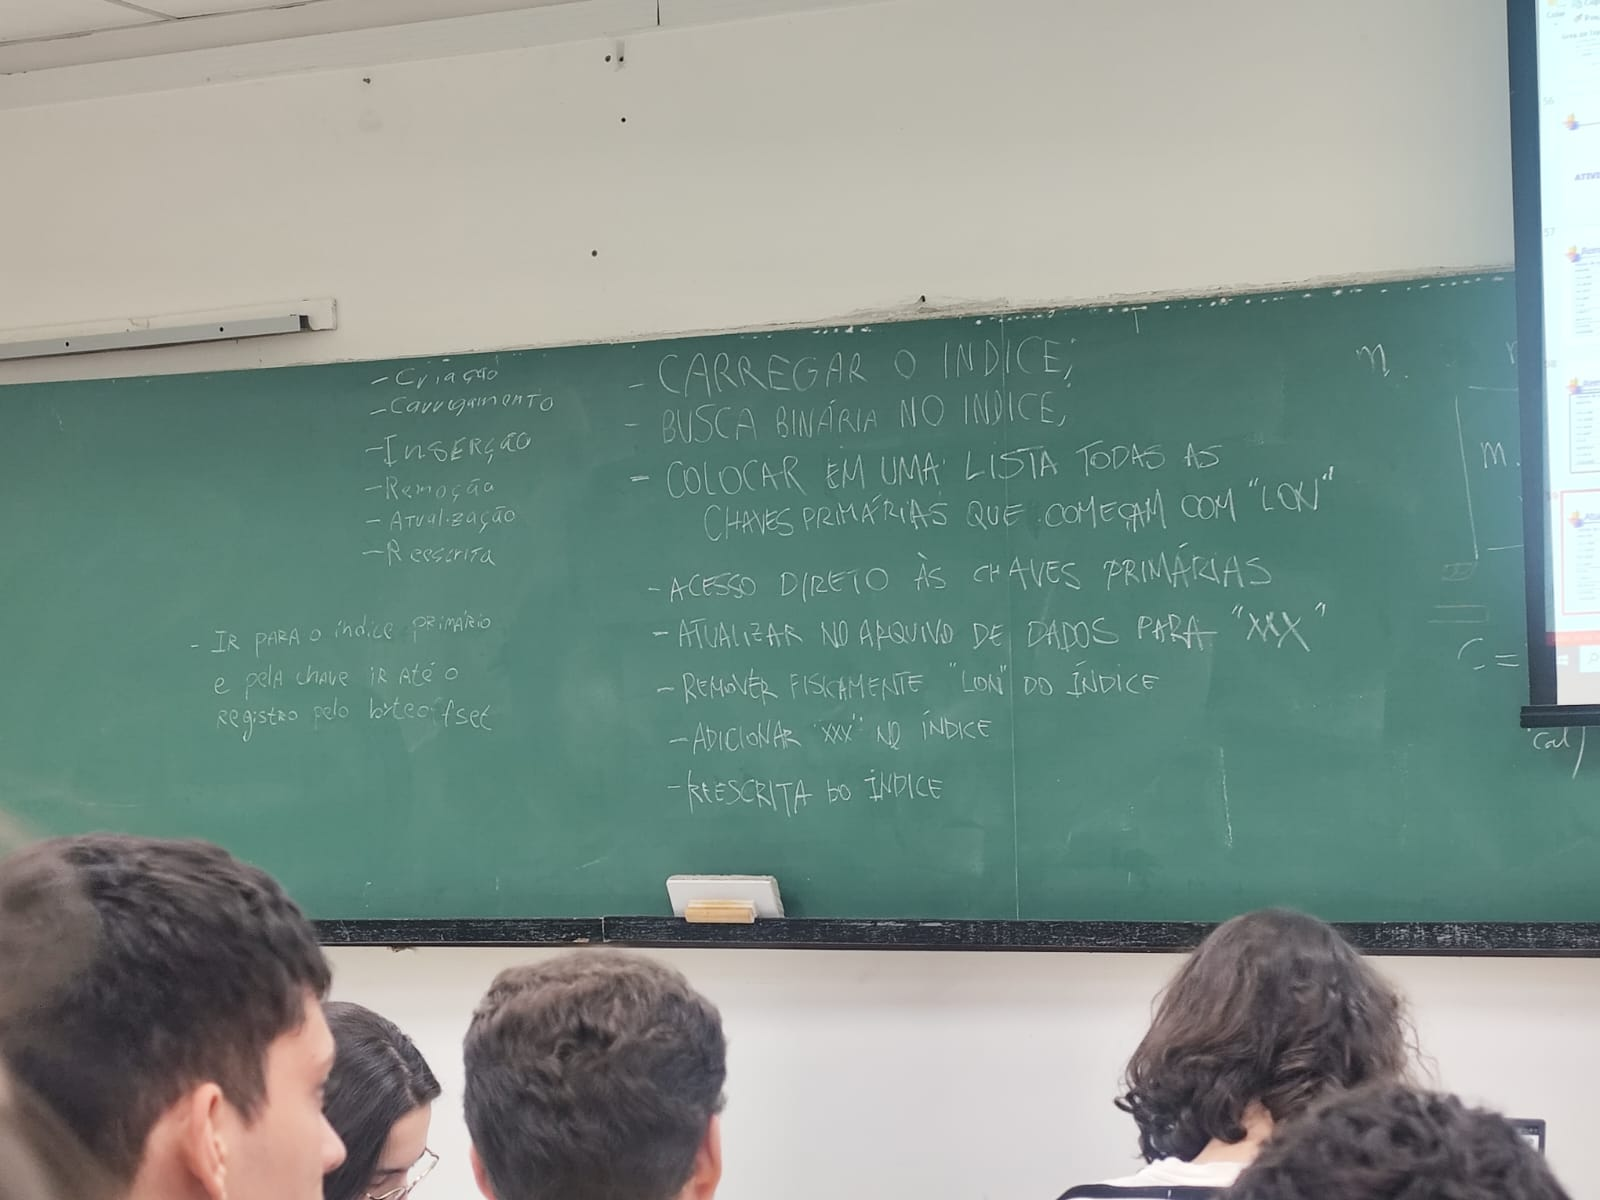 - Criação
- Carregamento
- INSERÇÃO
- Remoção
- ATUALIZAÇÃO
- Reescrita
- IR PARA O índice PRIMÁRIO
e pela chave IR Até o
Registro pelo byteoffset
- CARREGAR O INDICE;
- BUSCA BINÁRIA NO INDICE;
- COLOCAR EM UMA LISTA TODAS AS
CHAVES PRIMÁRIAS QUE COMEÇAM COM "LON"
- ACESSO DIRETO ÀS CHAVES PRIMÁRIAS
- ATUALIZAR NO ARQUIVO DE DADOS PARA "XXX"
- REMOVER FISICAMENTE "LON" DO ÍNDICE
- ADICIONAR "XXX" NO ÍNDICE
- REESCRITA DO ÍNDICE
n.
m.
C =
56
ATIVI
57